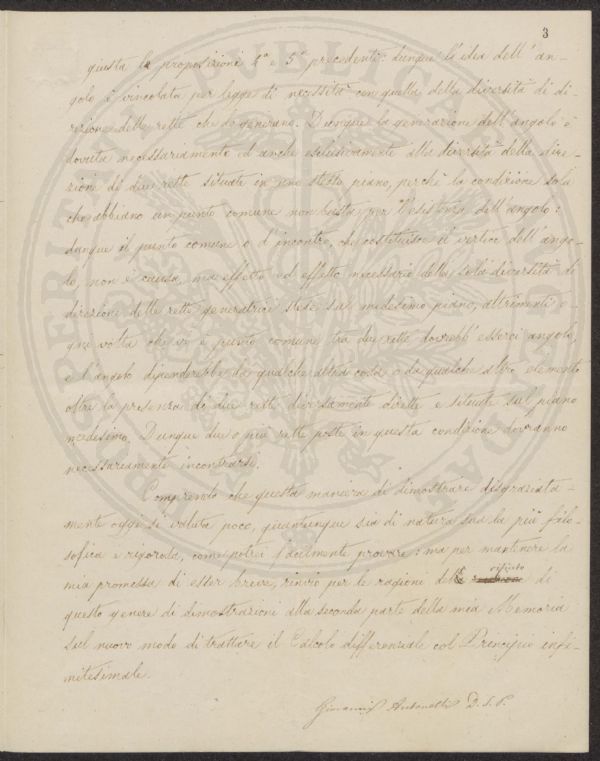 3
giusta le proposizioni 4ª e 5ª precedenti: dunque la idea dell'an-
golo è vincolata per legge di necessità con quella della diversità di di-
rezione delle rette che lo generano. Dunque la generazione dell'angolo è
dovuta necessariamente ed anche esclusivamente alla diversità della dire-
zione di due rette situate in uno stesso piano, perchè la condizione sola
che abbiano un punto comune non basta per l'esistenza dell'angolo:
dunque il punto comune o d'incontro, che costituisce il vertice dell'ango-
lo, non è causa, ma effetto ed effetto necessario della sola diversità di
direzioni delle rette generatrici stese sul medesimo piano, altrimenti o-
gni volta che vi è punto comune tra due rette dovrebb'esserci angolo,
e l'angolo dipenderebbe da qualche altra cosa o da qualche altro elemento
oltre la presenza di due rette diversamente dirette e situate sul piano
medesimo. Dunque due o più rette poste in questa condizione dovranno
necessariamente incontrarsi.
Comprendo che questa maniera di dimostrare disgraziata-
mente oggi si valuta poco, quantunque sia di natura sua la più filo-
sofica e rigorosa, come potrei facilmente provare: ma per mantenere la
mia promessa di esser breve, rinvio per le ragioni del rifiuto di
questo genere di dimostrazioni alla seconda parte della mia Memoria
sul nuovo modo di trattare il Calcolo differenziale col Principio infi-
nitesimale.
Giovanni Antonelli D. S. P.
PROSPERITATI SVELICAE